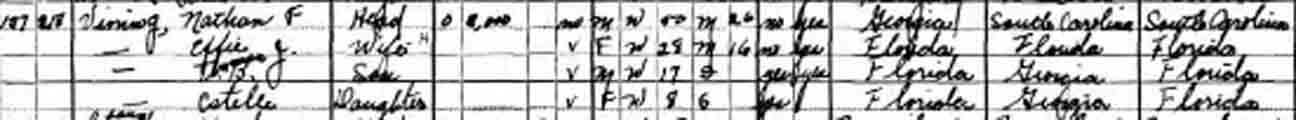 187 218 Vining, Nathan F Head O 2,000 no M W M 26 no yes Georgia South Carolina South Carolina
— Effie J. Wife H V F W 28 M 16 no yes Florida Florida Florida
— Son V M W 17 S yes yes Florida Georgia Florida
— Estelle Daughter V F W 8 yes Florida Georgia Florida